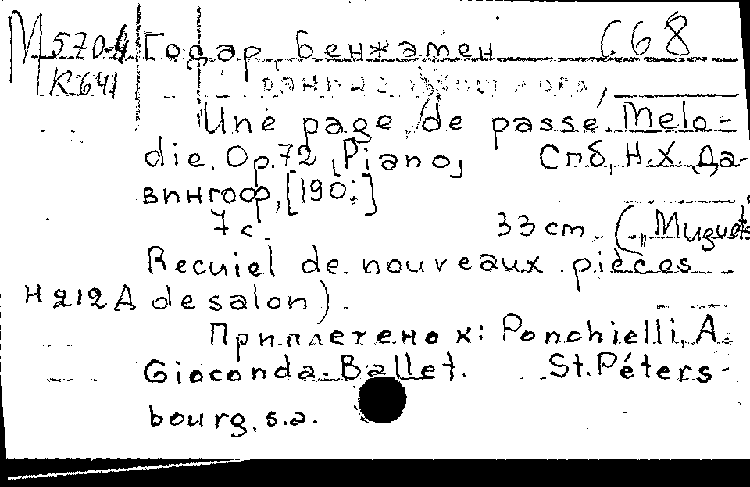 М 570-4 Годар, Бенжамен С68
К641
Une page de passé. Melo-
die. Op.72 [Piano] Спб, Н.Х. Да-
вингоф, [190;]
7 с. 33 cm. („Muguets
Recuiel de nouveaux pièces
Н212А de salon).
Приплетено к: Ponchielli, A.
Gioconda. Ballet. St. Péters-
bourg, s.a.